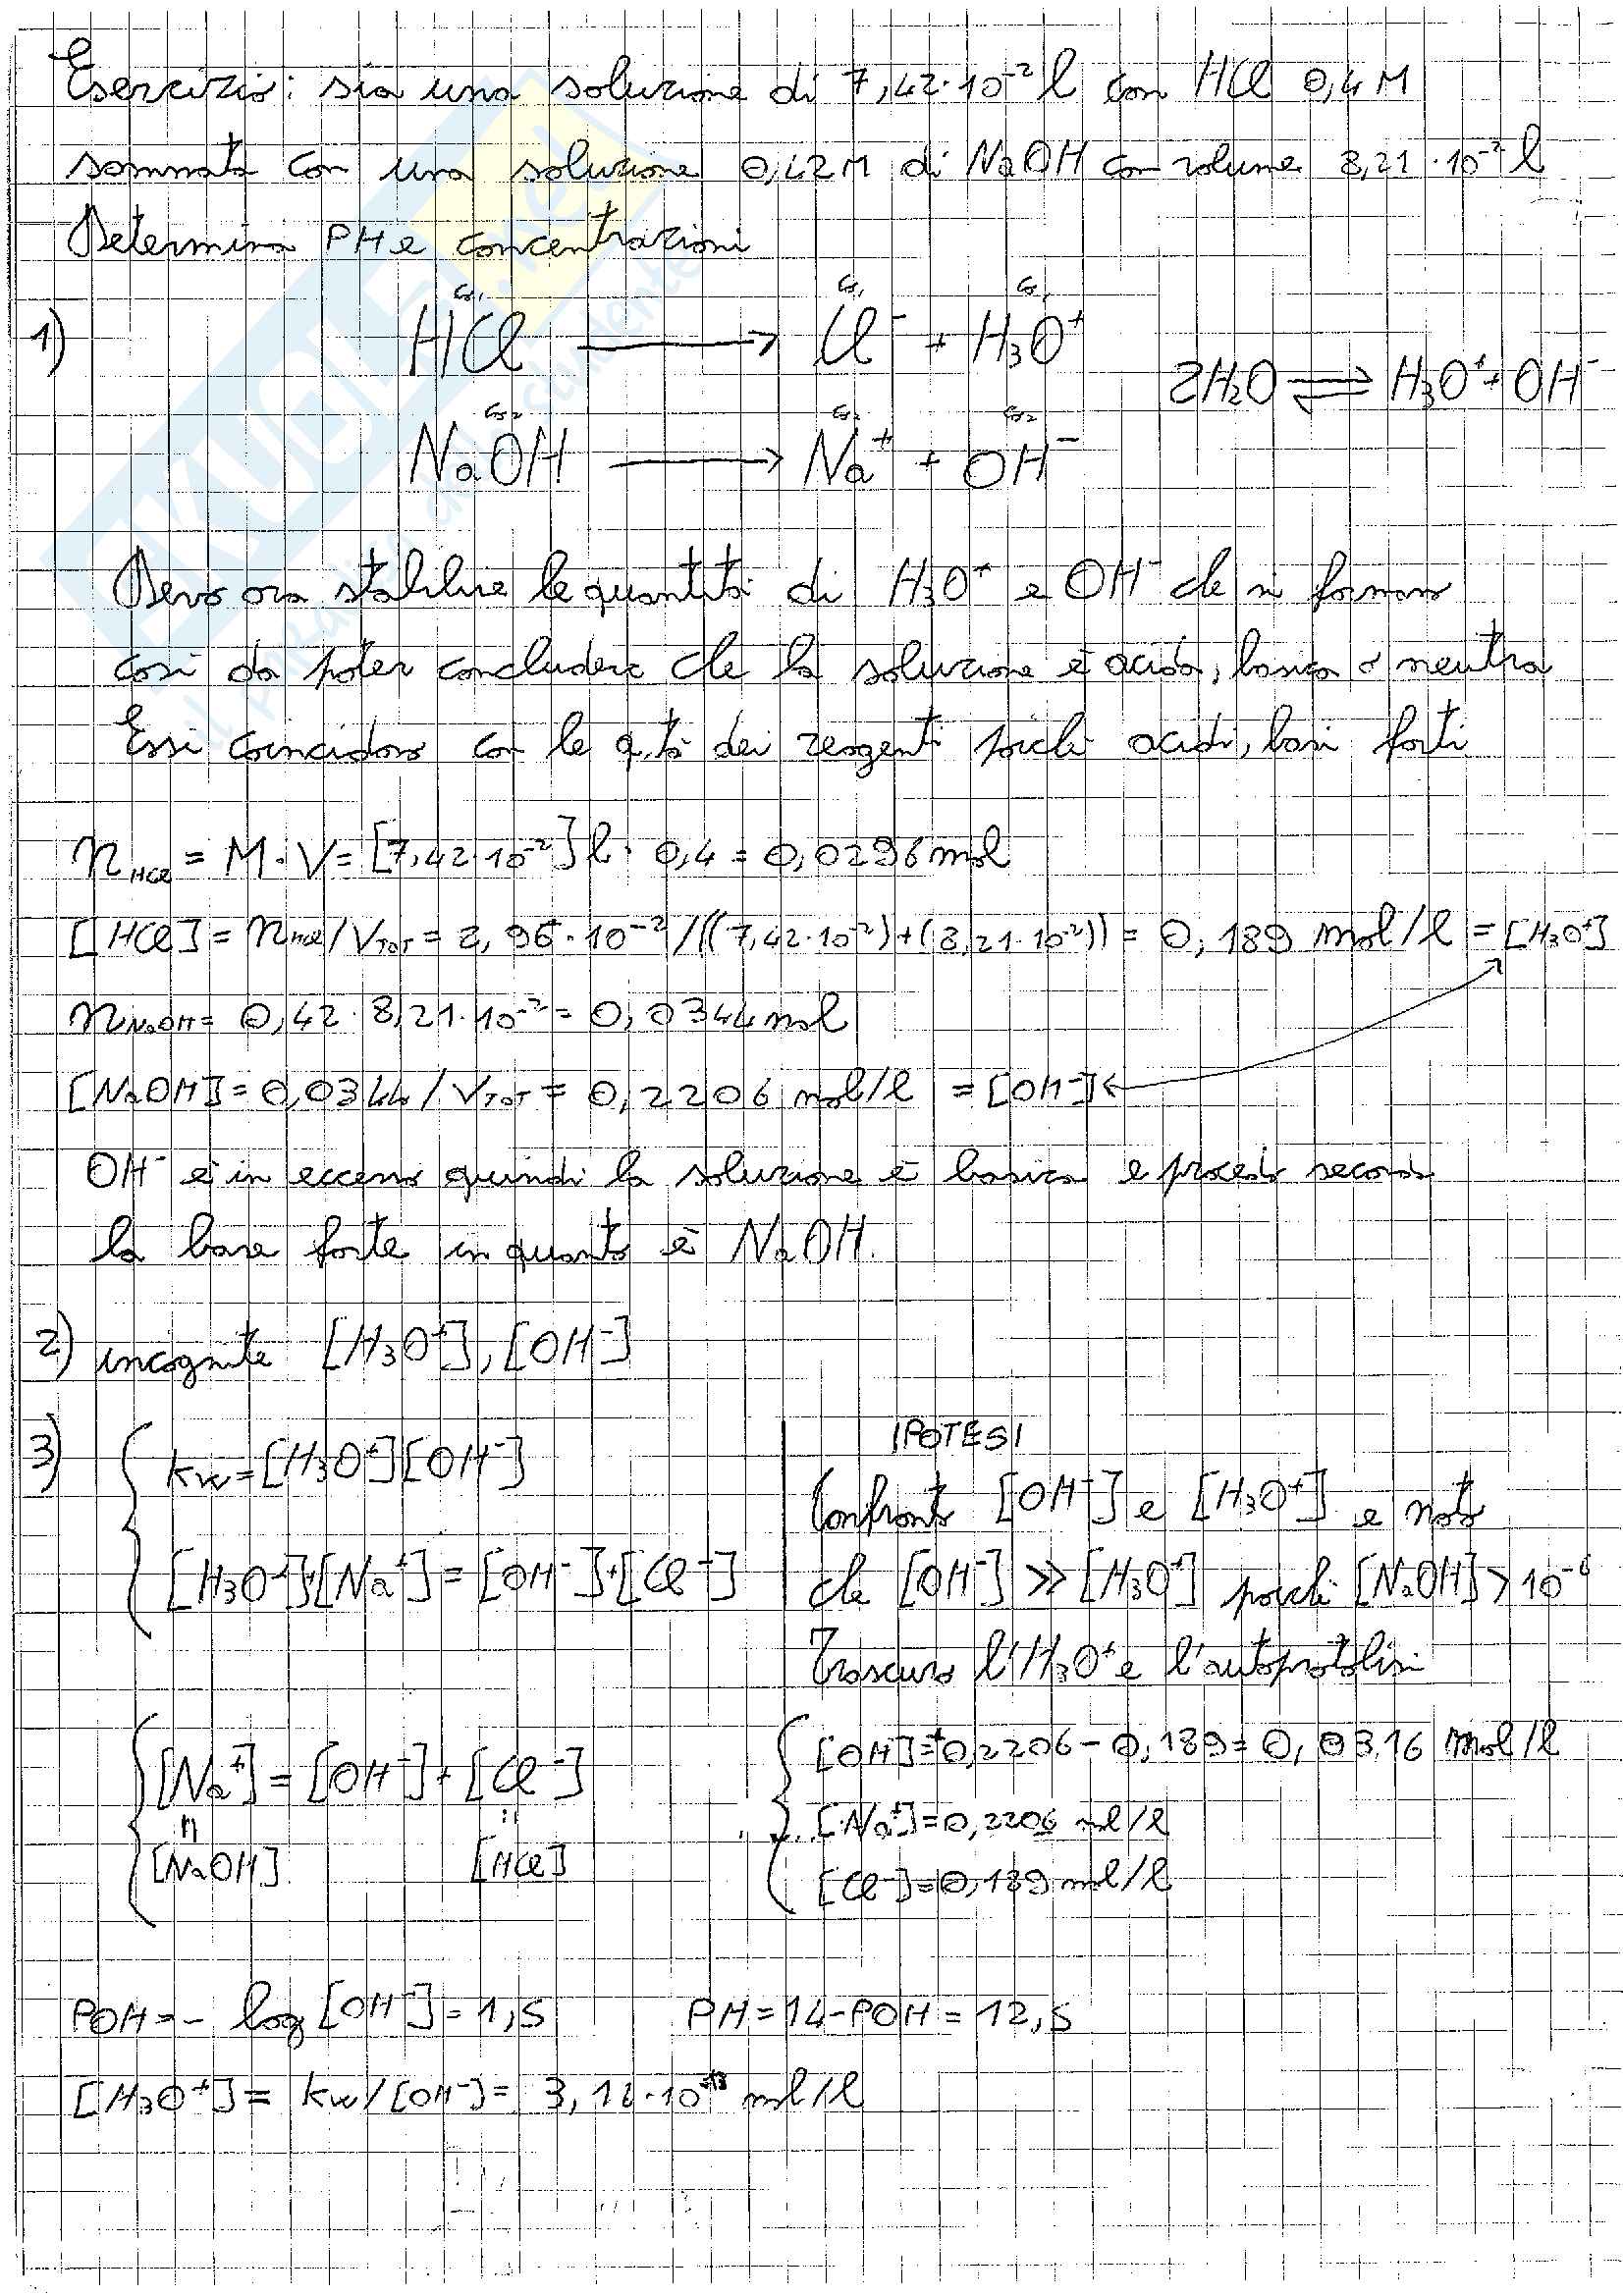 Esercizio: sia una soluzione di 7,42·10⁻² l con HCl 0,4 M
sommata con una soluzione 0,42M di NaOH con volume 8,21·10⁻² l
Determina PH e concentrazioni
1) HCl → Cl⁻ + H₃O⁺
2H₂O ⇌ H₃O⁺ + OH⁻
NaOH → Na⁺ + OH⁻
Devo ora stabilire le quantità di H₃O⁺ e OH⁻ che si formano
così da poter concludere che la soluzione è acida, basica o neutra
Essi coincidono con le q.tà dei reagenti poichè acidi, basi forti
n HCl = M·V = [7,42·10⁻²] l · 0,4 = 0,0296 mol
[HCl] = n HCl / V TOT = 2,96·10⁻² / ((7,42·10⁻²)+(8,21·10⁻²)) = 0,189 mol/l = [H₃O⁺]
n NaOH = 0,42·8,21·10⁻² = 0,0344 mol
[NaOH] = 0,0344 / V TOT = 0,2206 mol/l = [OH⁻]
OH⁻ è in eccesso quindi la soluzione è basica e procedo secondo
la base forte in quanto è NaOH.
2) incognite [H₃O⁺], [OH⁻]
3) kw = [H₃O⁺][OH⁻]
[H₃O⁺]+[Na⁺] = [OH⁻]+[Cl⁻]
IPOTESI
Confronto [OH⁻] e [H₃O⁺] e noto
che [OH⁻] >> [H₃O⁺] poichè [NaOH] > 10⁻⁶
Trascuro l'H₃O⁺ e l'autoprotolisi
[Na⁺] = [OH⁻] + [Cl⁻]
[NaOH] [HCl]
[OH⁻] = +0,2206 - 0,189 = 0,0316 mol/l
[Na⁺] = 0,2206 mol/l
[Cl⁻] = 0,189 mol/l
POH = - log [OH⁻] = 1,5 PH = 14-POH = 12,5
[H₃O⁺] = kw/[OH⁻] = 3,12·10⁻¹³ mol/l